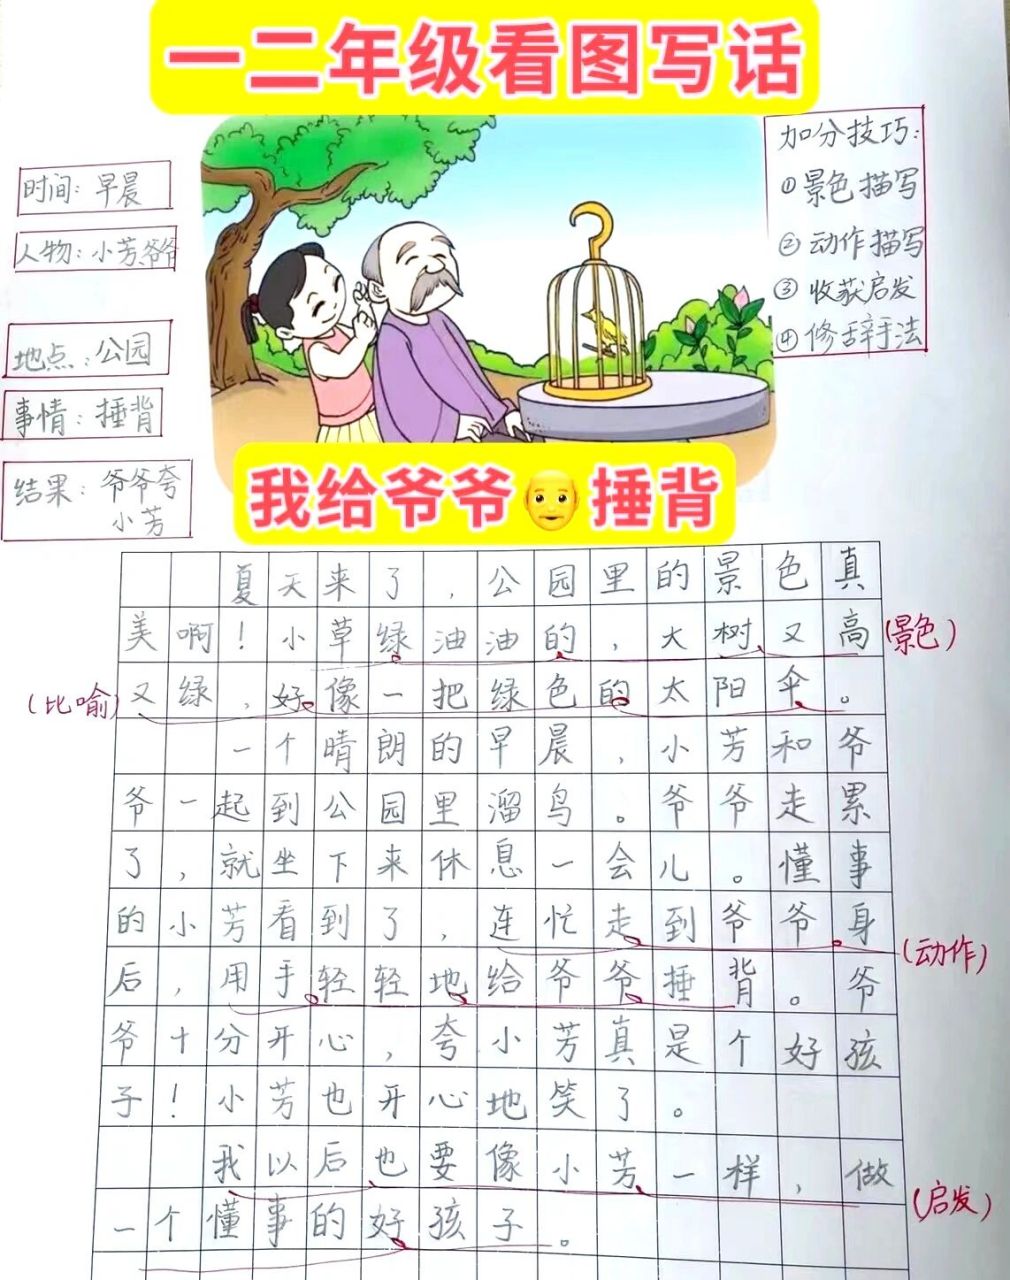 一二年级看图写话
时间：早晨
人物：小芳爷爷
地点：公园
事情：捶背
结果：爷爷夸
小芳
加分技巧：
①景色描写
②动作描写
③收获启发
④修辞手法
我给爷爷👴捶背
夏天来了，公园里的景色真
美啊！小草绿油油的，大树又高
(景色)
(比喻)
又绿，好像一把绿色的太阳伞。
一个晴朗的早晨，小芳和爷
爷一起到公园里溜鸟。爷爷走累
了，就坐下来休息一会儿。懂事
的小芳看到了，连忙走到爷爷身
(动作)
后，用手轻轻地给爷爷捶背。爷
爷十分开心，夸小芳真是个好孩
子！小芳也开心地笑了。
我以后也要像小芳一样，做
(启发)
一个懂事的好孩子。